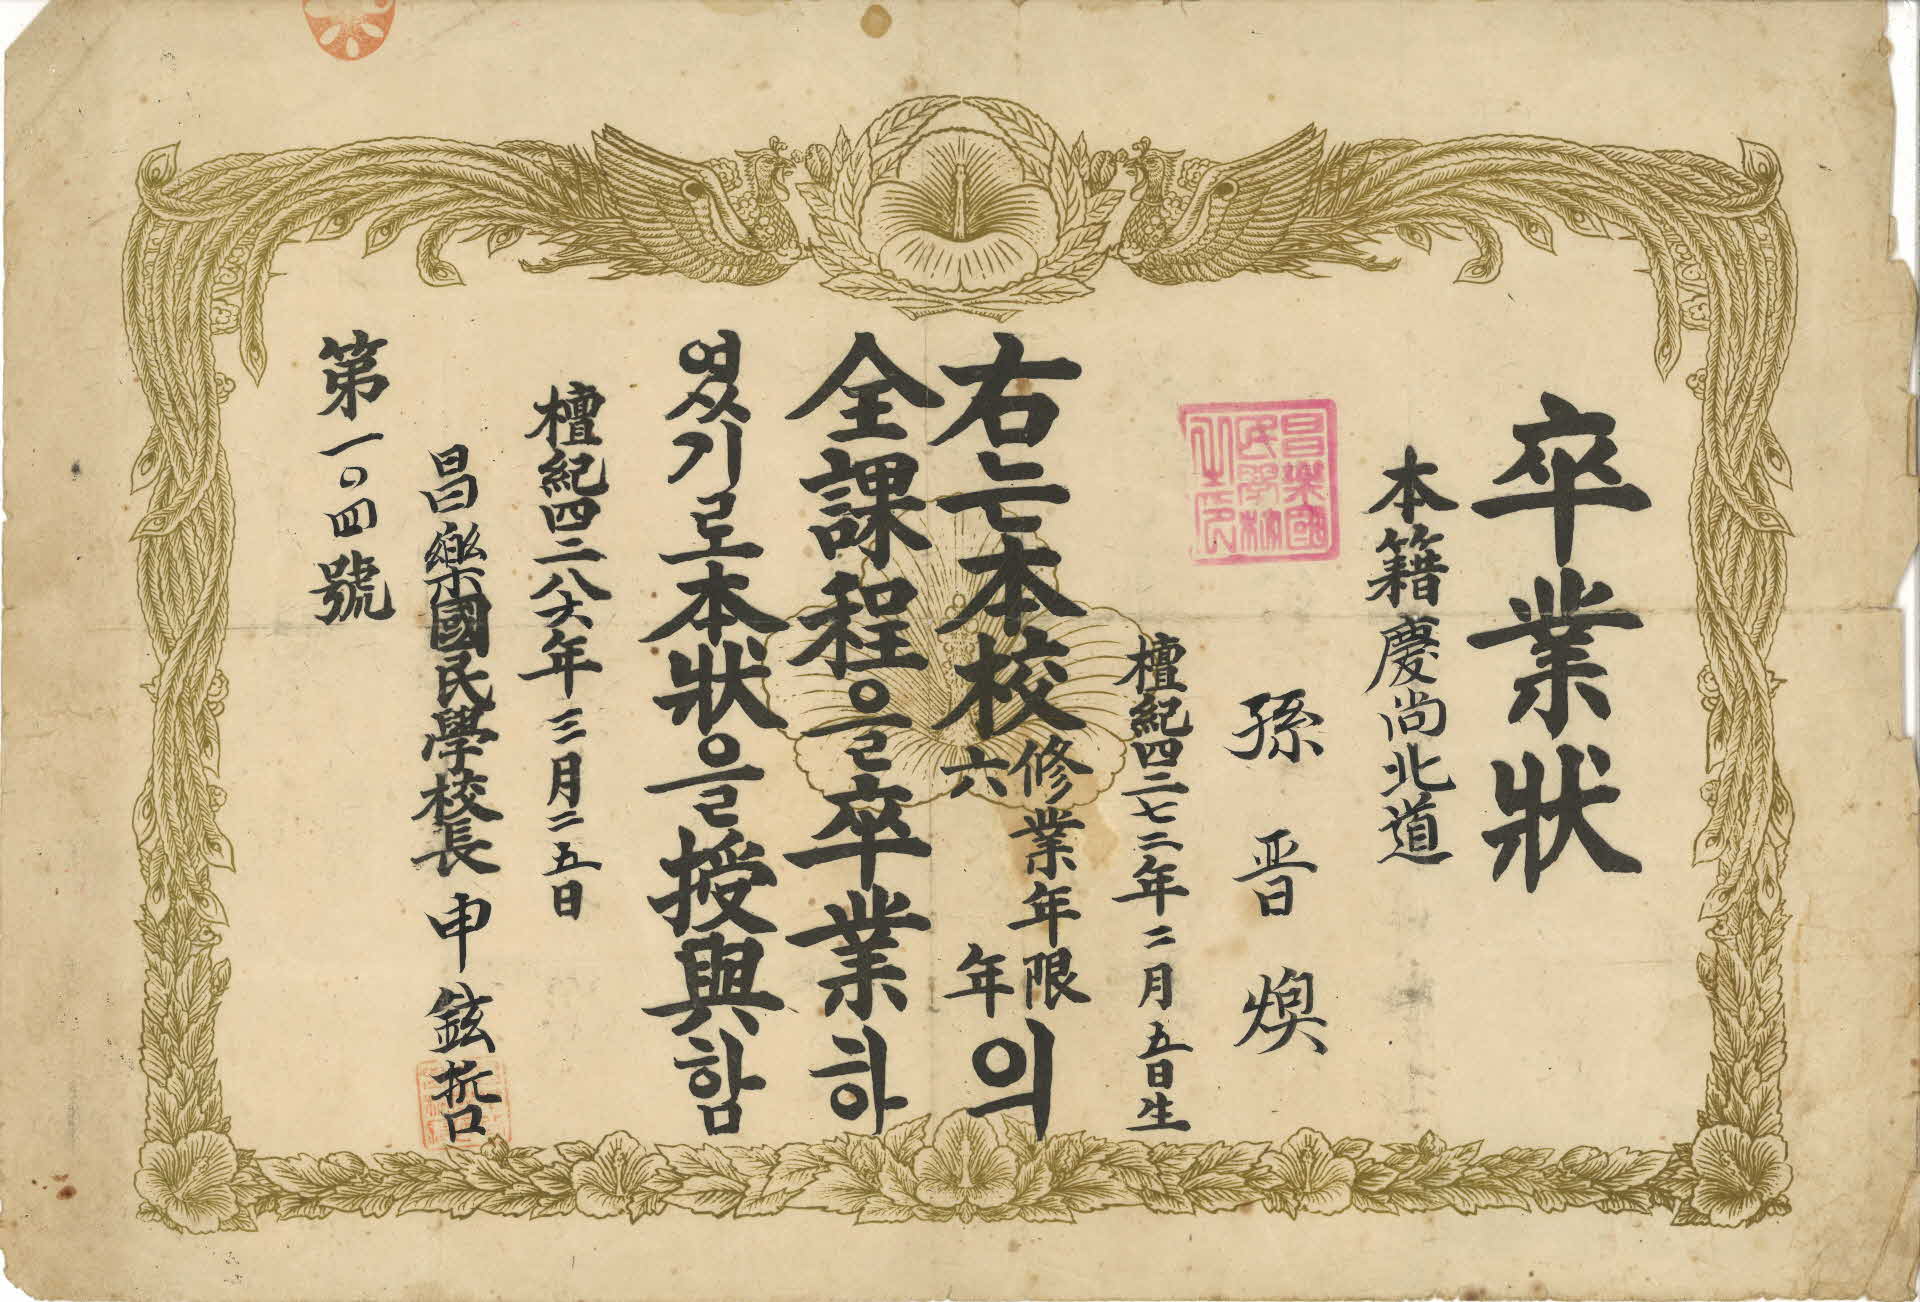 卒業狀
本籍慶尚北道
孫晋煥
檀紀四二七二年二月五日生
昌樂國
民學校
之印
右는本校修業年限六年의
全課程을卒業하
였기로本狀을授與함
檀紀四二八六年三月二五日
昌樂國民學校長申鉉哲
第一〇四號